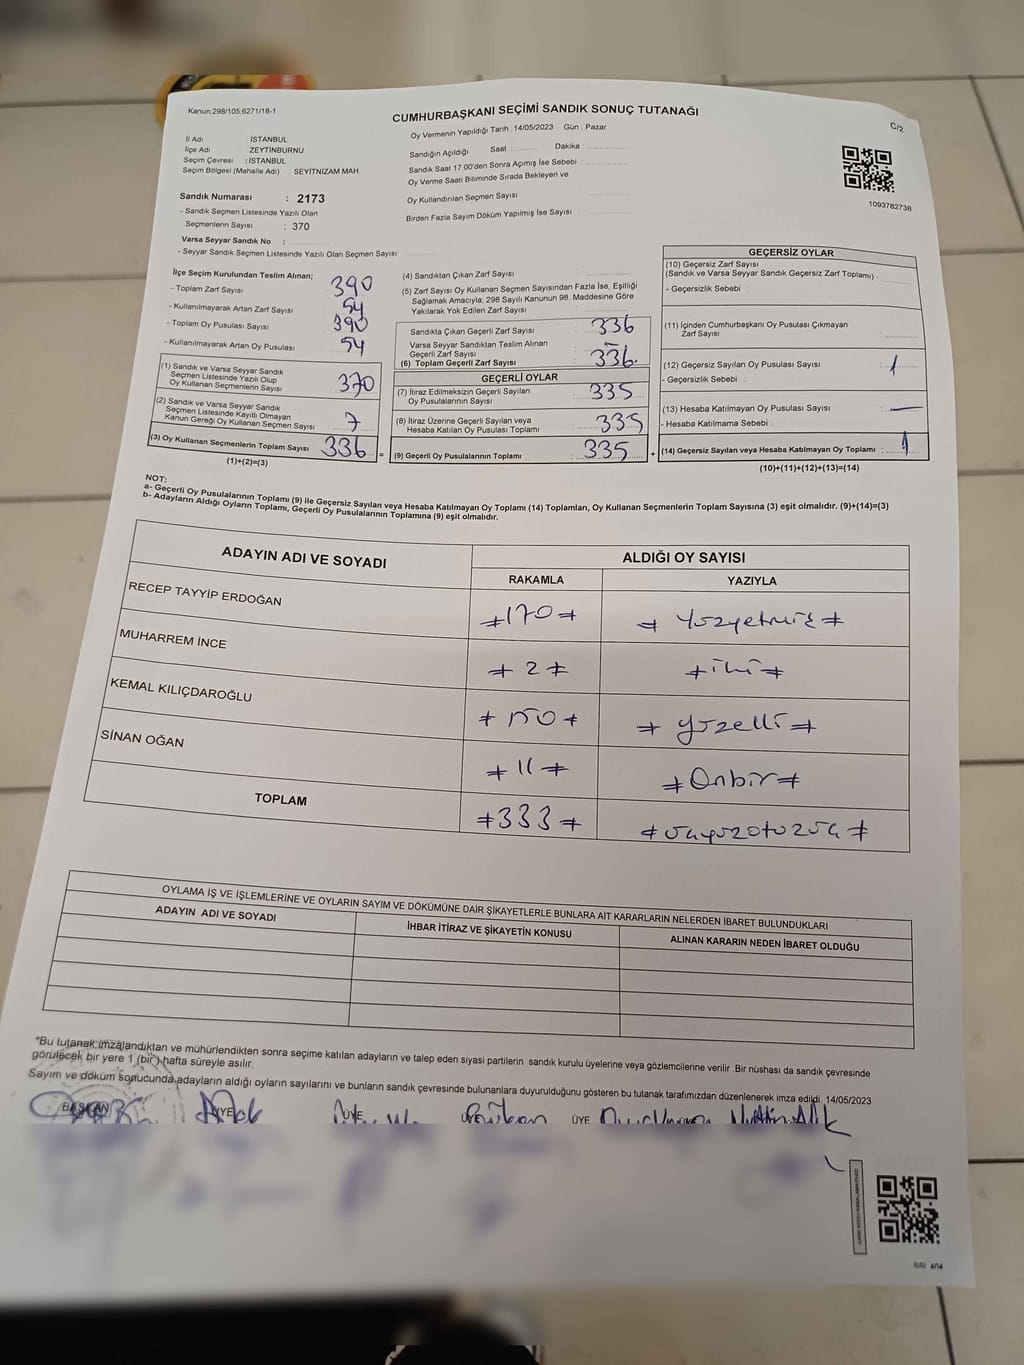 Kanun:298/105,6271/18-1
CUMHURBAŞKANI SEÇİMİ SANDIK SONUÇ TUTANAĞI
C/2
Oy Vermenin Yapıldığı Tarih :14/05/2023 Gün : Pazar
İl Adı : İSTANBUL
İlçe Adı : ZEYTİNBURNU
Seçim Çevresi : İSTANBUL
Seçim Bölgesi (Mahalle Adı) SEYİTNİZAM MAH.
Sandığın Açıldığı Saat Dakika :
Sandık Saat 17:00'den Sonra Açımış İse Sebebi :
Oy Verme Saati Bitiminde Sırada Bekleyen ve
Oy Kullandırılan Seçmen Sayısı
Birden Fazla Sayım Döküm Yapılmış İse Sayısı :
1093782738
Sandık Numarası : 2173
- Sandık Seçmen Listesinde Yazılı Olan
Seçmenlerin Sayısı : 370
Varsa Seyyar Sandık No :
- Seyyar Sandık Seçmen Listesinde Yazılı Olan Seçmen Sayısı:
İlçe Seçim Kurulundan Teslim Alınan;
- Toplam Zarf Sayısı 390
- Kullanılmayarak Artan Zarf Sayısı 54
- Toplam Oy Pusulası Sayısı 390
- Kullanılmayarak Artan Oy Pusulası 54
(1) Sandık ve Varsa Seyyar Sandık
Seçmen Listesinde Yazılı Olup
Oy Kullanan Seçmenlerin Sayısı 370
(2) Sandık ve Varsa Seyyar Sandık
Seçmen Listesinde Kayıtlı Olmayan
Kanun Gereği Oy Kullanan Seçmen Sayısı : 7
(3) Oy Kullanan Seçmenlerin Toplam Sayısı 336 =
(1)+(2)=(3)
(4) Sandıktan Çıkan Zarf Sayısı
(5) Zarf Sayısı Oy Kullanan Seçmen Sayısından Fazla İse, Eşitliği
Sağlamak Amacıyla, 298 Sayılı Kanunun 98. Maddesine Göre
Yakılarak Yok Edilen Zarf Sayısı
Sandıkta Çıkan Geçerli Zarf Sayısı 336
Varsa Seyyar Sandıktan Teslim Alınan
Geçerli Zarf Sayısı : -
(6) Toplam Geçerli Zarf Sayısı 336.
GEÇERLİ OYLAR
(7) İtiraz Edilmeksizin Geçerli Sayılan
Oy Pusulalarının Sayısı 335
(8) İtiraz Üzerine Geçerli Sayılan veya
Hesaba Katılan Oy Pusulası Toplamı 335
(9) Geçerli Oy Pusulalarının Toplamı 335 +
GEÇERSİZ OYLAR
(10) Geçersiz Zarf Sayısı
(Sandık ve Varsa Seyyar Sandık Geçersiz Zarf Toplamı)
- Geçersizlik Sebebi :
(11) İçinden Cumhurbaşkanı Oy Pusulası Çıkmayan
Zarf Sayısı
(12) Geçersiz Sayılan Oy Pusulası Sayısı : 1
- Geçersizlik Sebebi :
(13) Hesaba Katılmayan Oy Pusulası Sayısı : —
- Hesaba Katılmama Sebebi :
(14) Geçersiz Sayılan veya Hesaba Katılmayan Oy Toplamı : 1
(10)+(11)+(12)+(13)=(14)
NOT:
a- Geçerli Oy Pusulalarının Toplamı (9) ile Geçersiz Sayılan veya Hesaba Katılmayan Oy Toplamı (14) Toplamları, Oy Kullanan Seçmenlerin Toplam Sayısına (3) eşit olmalıdır. (9)+(14)=(3)
b- Adayların Aldığı Oyların Toplamı, Geçerli Oy Pusulalarının Toplamına (9) eşit olmalıdır.
ADAYIN ADI VE SOYADI ALDIĞI OY SAYISI
RAKAMLA YAZIYLA
RECEP TAYYİP ERDOĞAN ≠170≠ ≠ Yüzyetmiş ≠
MUHARREM İNCE ≠ 2 ≠ ≠ iki ≠
KEMAL KILIÇDAROĞLU ≠ 150 ≠ ≠ yüzelli ≠
SİNAN OĞAN ≠ 11 ≠ ≠ Onbir ≠
TOPLAM ≠333≠ ≠ üçyüzotuzüç ≠
OYLAMA İŞ VE İŞLEMLERİNE VE OYLARIN SAYIM VE DÖKÜMÜNE DAİR ŞİKAYETLERLE BUNLARA AİT KARARLARIN NELERDEN İBARET BULUNDUKLARI
ADAYIN ADI VE SOYADI İHBAR İTİRAZ VE ŞİKAYETİN KONUSU ALINAN KARARIN NEDEN İBARET OLDUĞU
"Bu tutanak imzalandıktan ve mühürlendikten sonra seçime katılan adayların ve talep eden siyasi partilerin sandık kurulu üyelerine veya gözlemcilerine verilir. Bir nüshası da sandık çevresinde
görülecek bir yere 1 (bir) hafta süreyle asılır.
Sayım ve döküm sonucunda adayların aldığı oyların sayılarını ve bunların sandık çevresinde bulunanlara duyurulduğunu gösteren bu tutanak tarafımızdan düzenlenerek imza edildi. 14/05/2023
BAŞKAN ÜYE ÜYE ÜYE